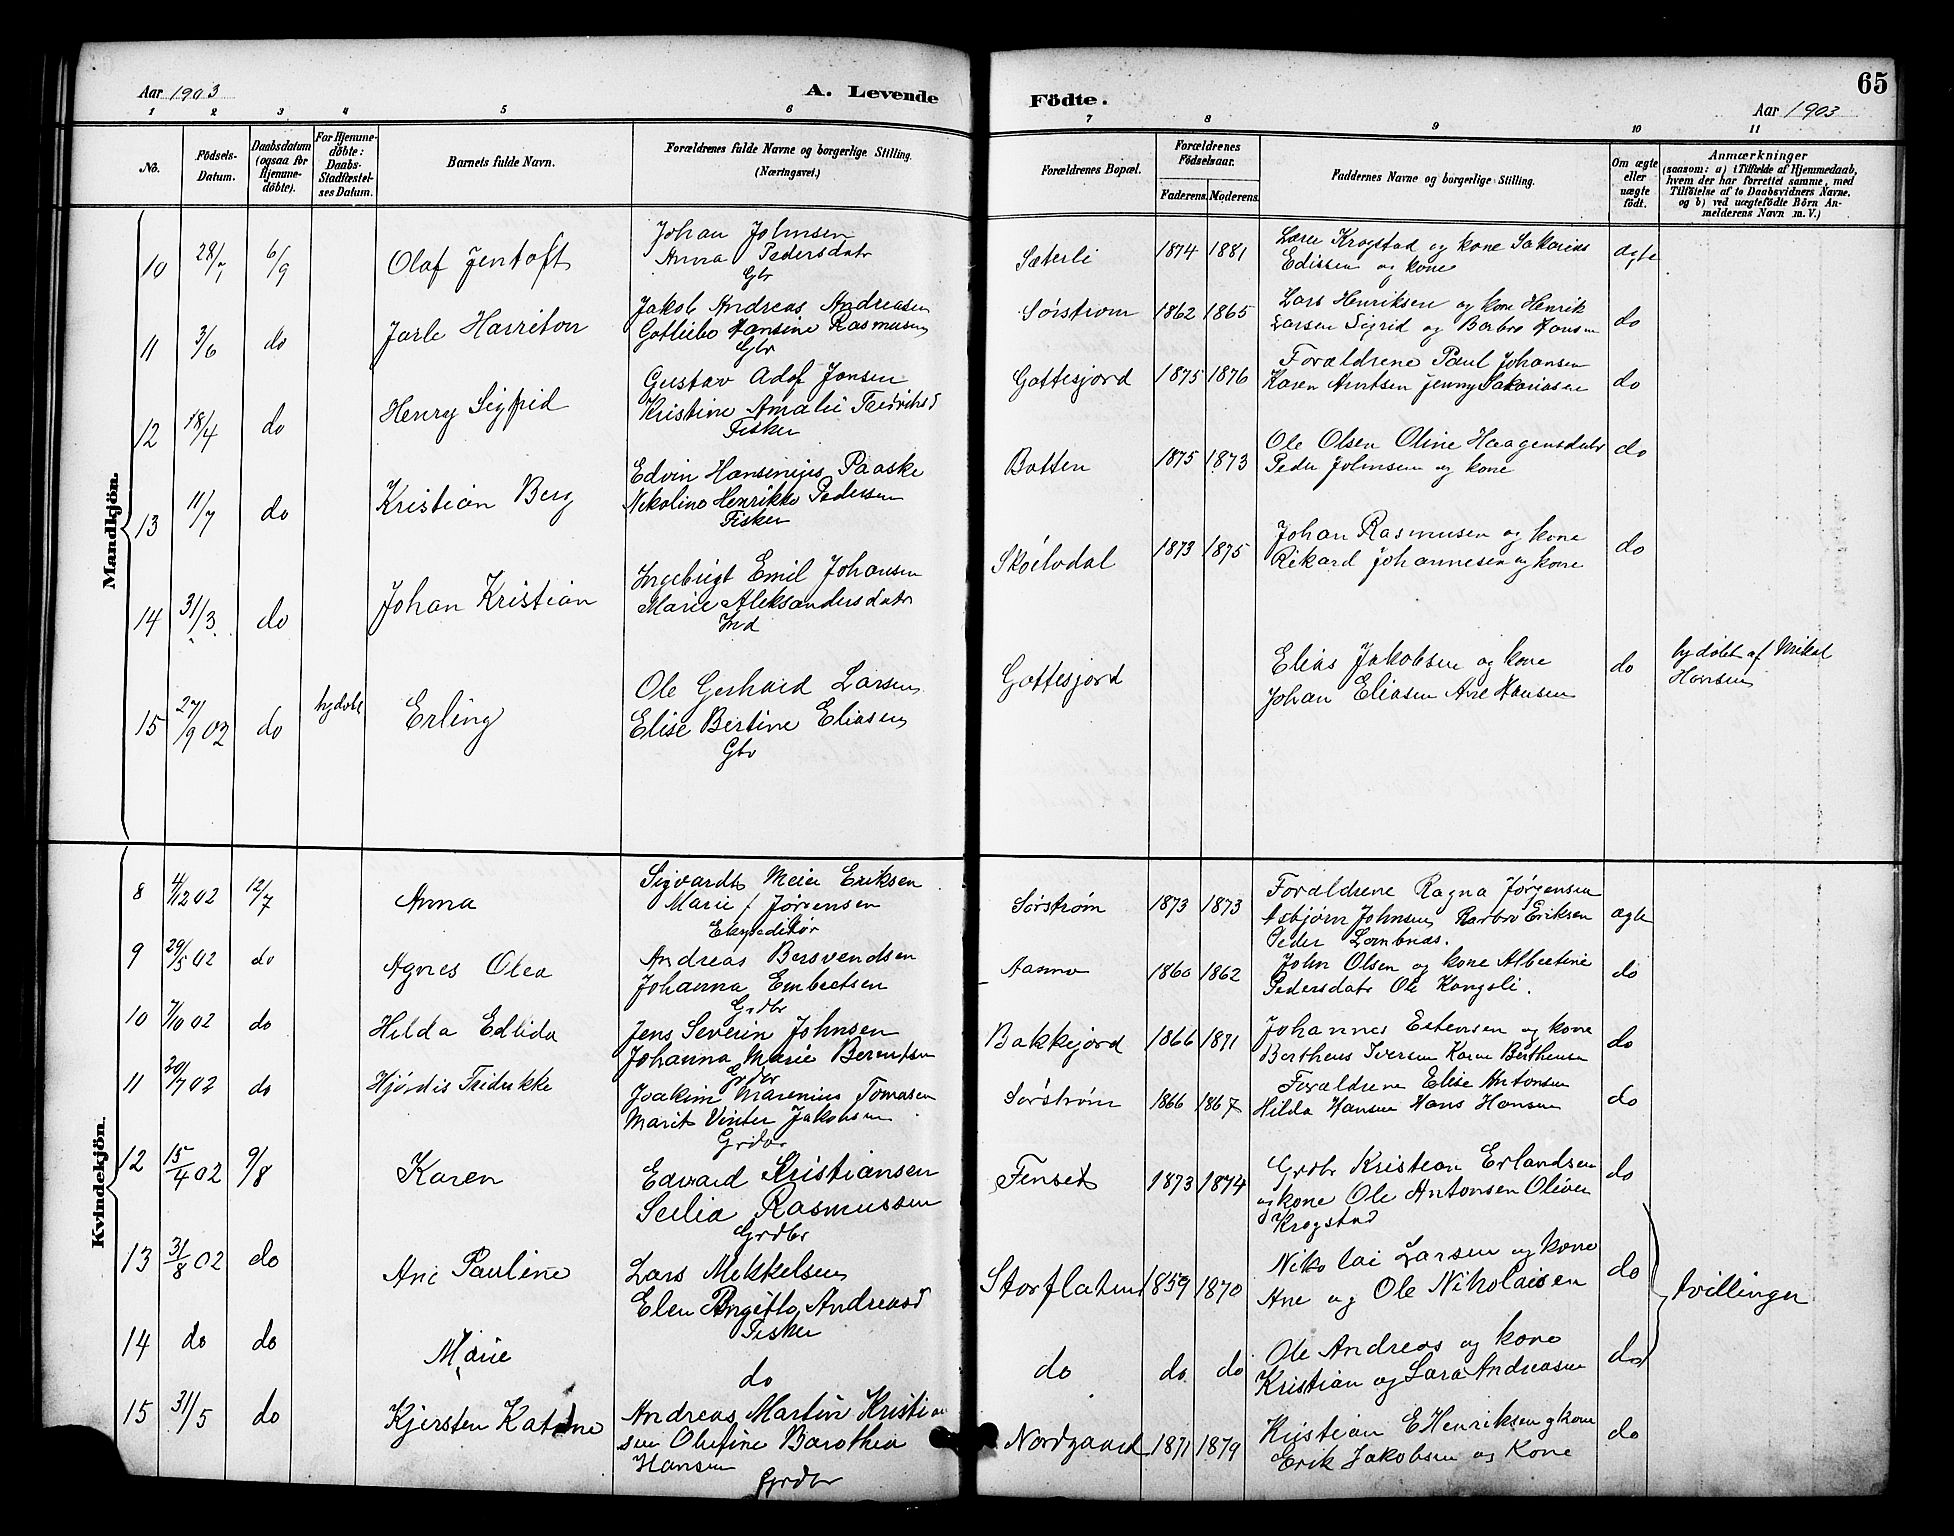 Aar 1903
A. Levende
Födte.
65
Aar 1903
1 2 3 4 5 6 7 8 9 10 11
No.
Födsels-
Datum.
Daabsdatum
(ogsaa for
Hjemme-
döbte).
For Hjemme-
döbte:
Daabs-
Stadfæstel-
ses Datum.
Barnets fulde Navn.
Forældrenes fulde Navne og borgerlige Stilling.
(Næringsvei.)
Forældrenes Bopæl.
Forældrenes
Födselsaar.
Faderens. Moderens.
Faddernes Navne og borgerlige Stilling.
Om ægte
eller
uægte
födt.
Anmærkninger
(saasom: a) i Tilfælde af Hjemmedaab,
hvem der har forrettet samme, med
Tilföielse af to Daabsvidners Navne,
og b) ved uægtefödte Börn An-
melderens Navn m. V.)
Mandkjön.
10 28/7 6/9 Olaf Jentoft
Johan Johnsen
Anna Pedersdatr
Gbr
Sæterli 1874 1881
Lærer Krogstad og kone Sakarias
Edissen og kone
ægte
11 3/6 do Jarle Harriton
Jakob Andreas Andreasen
Gotliebe Hansine Rasmusen
Gbr
Sørstrom 1862 1865
Lars Henriksen og kone Henrik
Larsen Sigrid og Barbro Hansen
do
12 18/4 do Henry Sigfrid
Gustav Adof Jonsen
Kristine Amalie Fredriksd
Fisker
Gottesjord 1875 1876
Forældrene Paul Johansen
Karen Arntsen Jenny Sakariasen
do
13 11/7 do Kristian Berg
Edvin Paaske
Nikoline Henrikke Pedersen
Fisker
Botten 1875 1873
Ole Olsen Oline Haagensdatr
Peder Johnsen og kone
do
14 31/3 do Johan Kristian
Ingebrigt Emil Johansen
Marie Aleksandersdatr
Ind
Skoelvdal 1873 1875
Johan Rasmusen og kone
Rikard Johannesen og kone
do
15 27/9 02 do hjdøbt Erling
Ole Gerhard Larsen
Elise Bertine Eliasen
Gbr
Gottesjord
Elias Jakobsen og kone
Johan Eliasen Ane Hansen
do
hjdøbt af Mikal
Hansen
Kvindekjön.
8 4/12 02 12/7 Anna
Sigvardt Meier Eriksen
Marie f Jørgensen
Ekspeditør
Sørstrøm 1873 1873
Forældrene Ragna Jørgensen
Asbjørn Johnsen Barbro Eriksen
Peder Lambnæs.
ægte
9 29/5 02 do Agnes Olea
Andreas Bersvendsen
Johanna Embretsen
Grdbr
Aasmo 1860 1862
John Olsen og kone Albertine
Pedersdatr Ole Kongsli.
do
10 7/10 02 do Hilda Edlida
Jens Severin Johnsen
Johanna Marie Berentsen
Grdbr
Bakkejord 1866 1871
Johannes Estensen og kone
Bertheus Iversen Karen Berthensen
do
11 20/7 02 do Hjørdis Fredrikke
Joakim Marenius Tomasen
Marit Vinter Jakobsen
Grdbr
Sørstrøm 1866 1867
Forældrene Elise Antonsen
Hilda Hansen Hans Hansen
do
12 15/4 02 9/8 Karen
Edvard Kristiansen
Seilia Rasmussen
Grdbr
Finset 1873 1874
Grdbr Kristian Erlandsen
og kone Ole Antonsen Oliver
Krogstad
do
13 31/8 02 do Ane Pauline
Lars Mikkelsen
Elen Andreasd
Fisker
Storflaten 1859 1870
Nikolai Larsen og kone
Ane og Ole Nikolaisen
do
tvillinger
14 do do Marie
do
do do do
Ole Andreas og kone
Kristian og Sara Andreasen
do
15 31/5 do Kjersten Katrine
Andreas Martin Kristian
sen Olufine Barothea
Hansen
Grdbr
Nordgaard 1871 1879
Kristian E Henriksen og kone
Erik Jakobsen og Kone
do